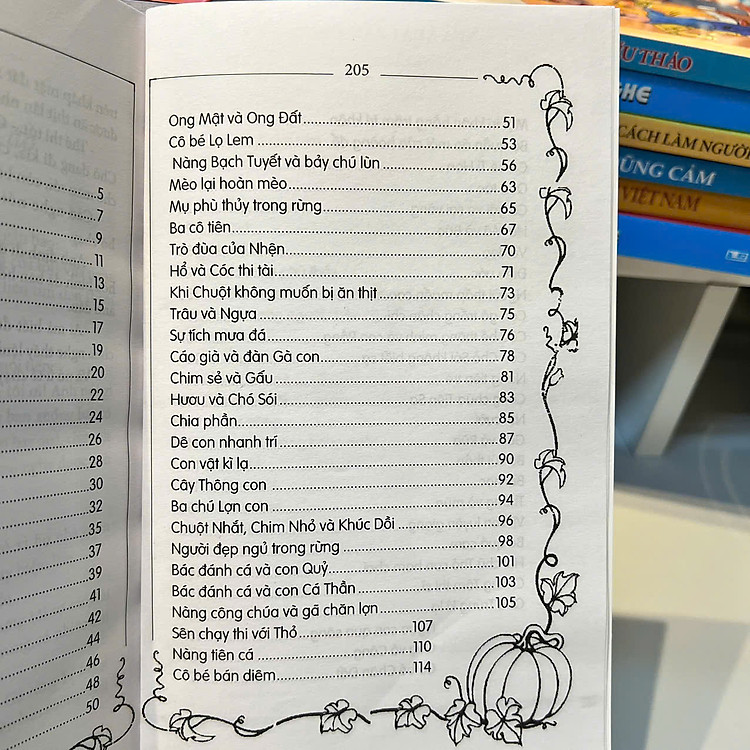 5
7
9
11
13
15
17
19
20
22
24
26
28
30
32
35
37
39
41
42
44
46
48
50
205
Ong Mật và Ong Đất 51
Cô bé Lọ Lem 53
Nàng Bạch Tuyết và bảy chú lùn 56
Mèo lại hoàn mèo 63
Mụ phù thủy trong rừng 65
Ba cô tiên 67
Trò đùa của Nhện 70
Hổ và Cóc thi tài 71
Khi Chuột không muốn bị ăn thịt 73
Trâu và Ngựa 75
Sự tích mưa đá 76
Cáo già và đàn Gà con 78
Chim sẻ và Gấu 81
Hươu và Chó Sói 83
Chia phần 85
Dê con nhanh trí 87
Con vật kì lạ 90
Cây Thông con 92
Ba chú Lợn con 94
Chuột Nhắt, Chim Nhỏ và Khúc Dồi 96
Người đẹp ngủ trong rừng 98
Bác đánh cá và con Quỷ 101
Bác đánh cá và con Cá Thần 103
Nàng công chúa và gã chăn lợn 105
Sên chạy thi với Thỏ 107
Nàng tiên cá 110
Cô bé bán diêm 114
THẢO
GHE
CÁCH LÀM NGƯỜI
ŨNG CẢM
VIỆT NAM